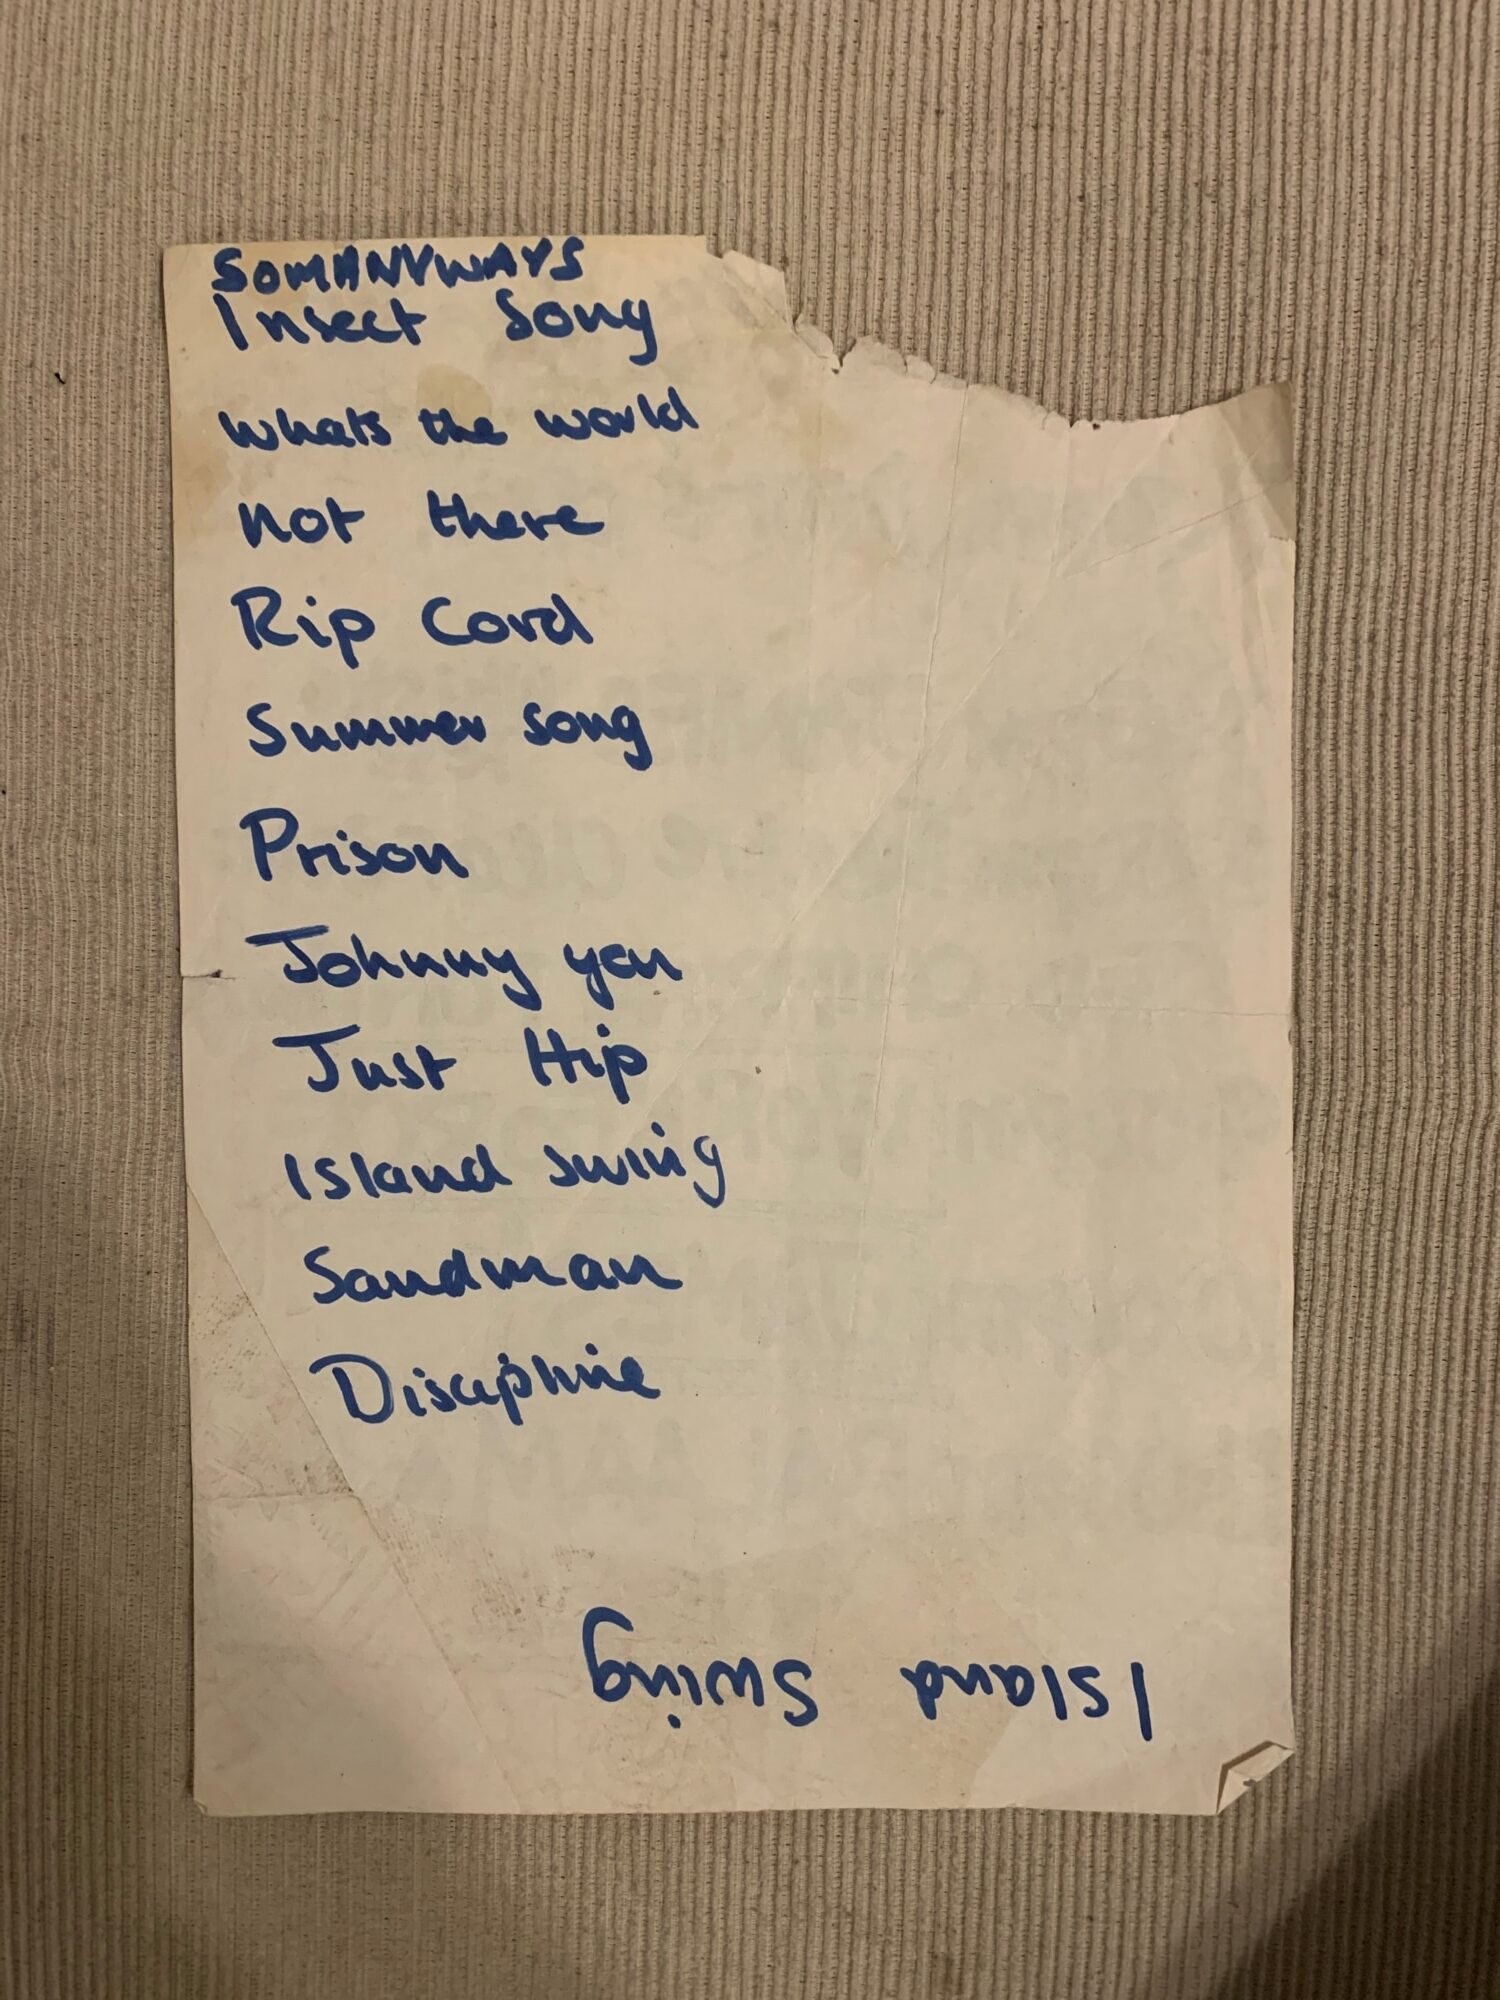 SOMANYWAYS
Insect Song
whats the world
not there
Rip Cord
Summer song
Prison
Johnny yen
Just Hip
Island swing
Sandman
Discipline
Island Swing